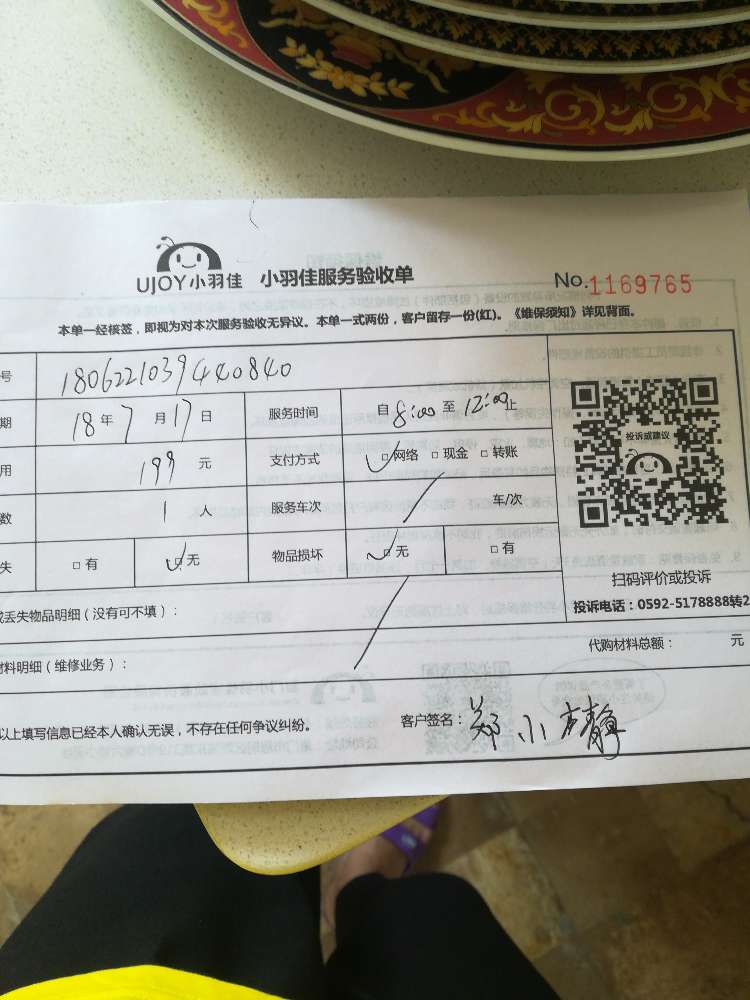 UJOY小羽佳 小羽佳服务验收单 No.1169765
本单一经核签，即视为对本次服务验收无异议。本单一式两份，客户留存一份(红)。《维保须知》详见背面。
号 180622103944 0840
期 18年7月17日 服务时间 自8:00至12:00止
用 199元 支付方式 □网络 □现金 □转账
数 1人 服务车次 车/次
失 □有 □无 物品损坏 □无 □有
投诉或建议
扫码评价或投诉
投诉电话：0592-5178888转2
或丢失物品明细（没有可不填）：
材料明细（维修业务）： 代购材料总额： 元
以上填写信息已经本人确认无误，不存在任何争议纠纷。 客户签名：郑小静